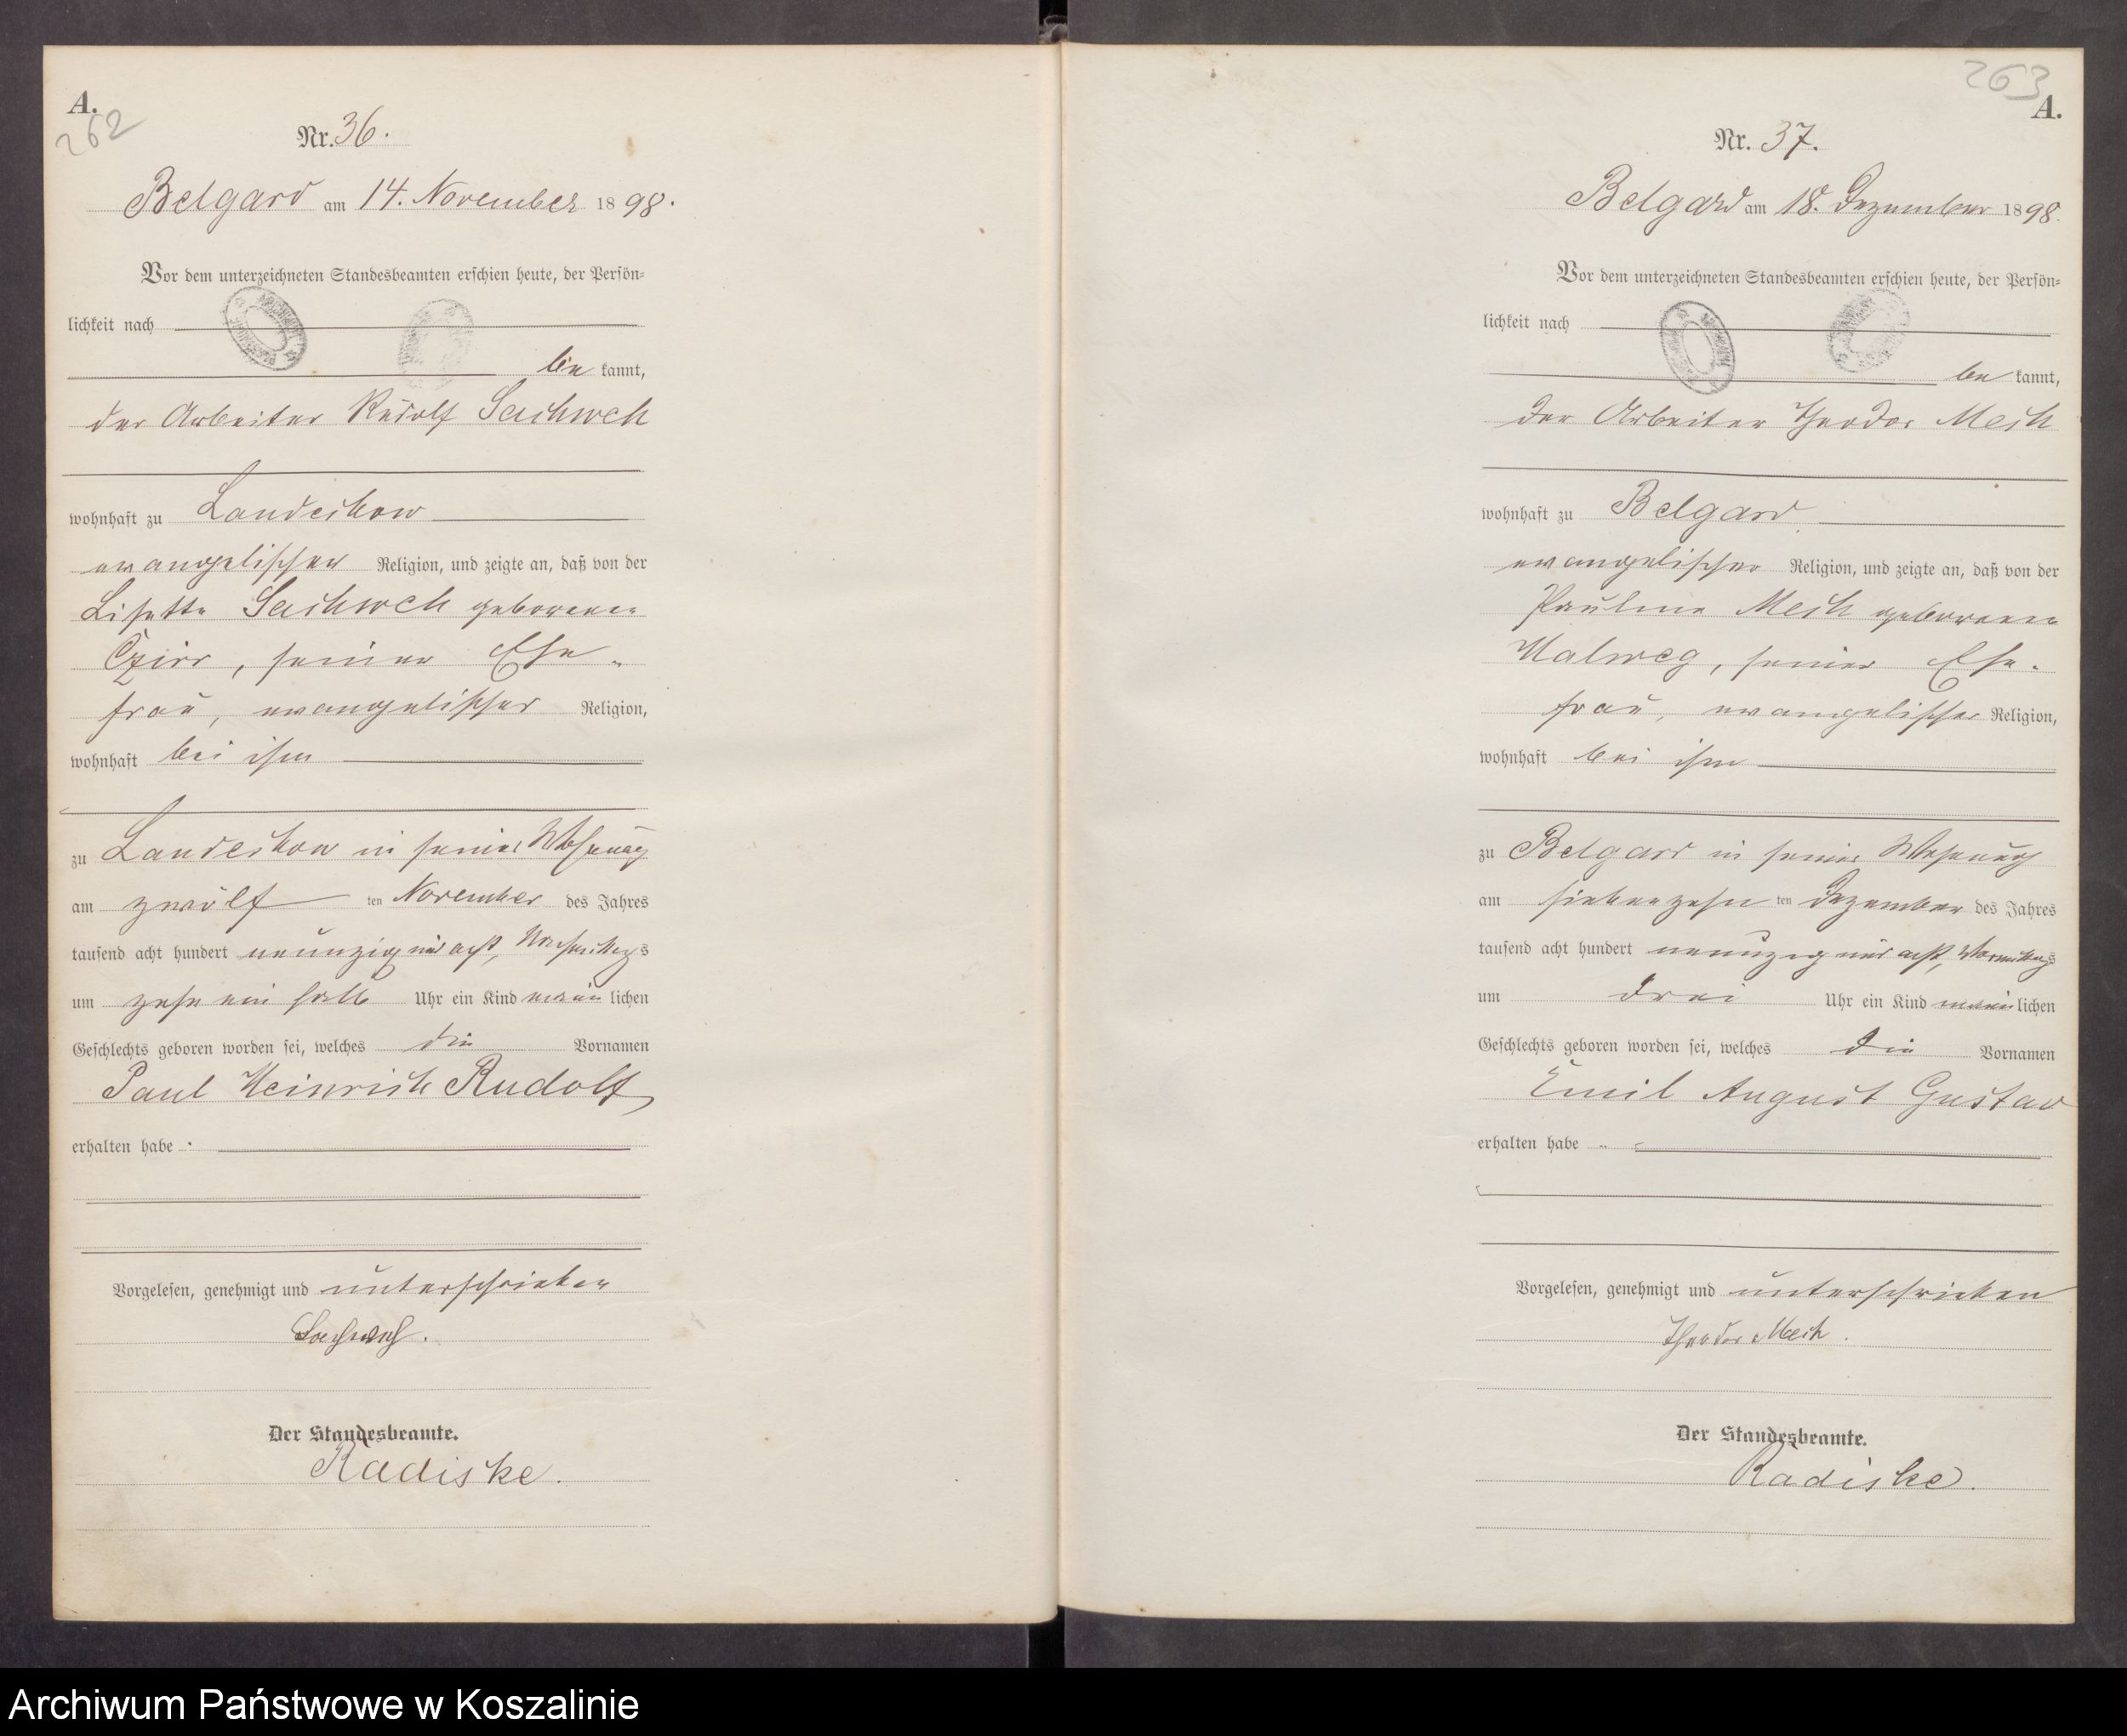 A.
262
Nr. 36.
Belgard am 14. November 1898.
Vor dem unterzeichneten Standesbeamten erschien heute, der Persön-
lichkeit nach
be kannt,
der Arbeiter Rudolf Sachweh
wohnhaft zu Landechow
evangelischer Religion, und zeigte an, daß von der
Lisette Sachweh geborenen
Czirr, seiner Ehe-
frau, evangelischer Religion,
wohnhaft bei ihm
zu Landechow in seiner Wohnung
am zwölf ten November des Jahres
tausend acht hundert neunzig und acht, Nachmittags
um zehn ein halb Uhr ein Kind männ lichen
Geschlechts geboren worden sei, welches die Vornamen
Paul Heinrich Rudolf
erhalten habe.
Vorgelesen, genehmigt und unterschrieben
Sachweh.
Der Standesbeamte.
Radiske.
263
A.
Nr. 37.
Belgard am 18. Dezember 1898.
Vor dem unterzeichneten Standesbeamten erschien heute, der Persön-
lichkeit nach
be kannt,
der Arbeiter Theodor Mech
wohnhaft zu Belgard
evangelischer Religion, und zeigte an, daß von der
Pauline Mech geborenen
Halweg, seiner Ehe-
frau, evangelischer Religion,
wohnhaft bei ihm
zu Belgard in seiner Wohnung
am siebenzehn ten Dezember des Jahres
tausend acht hundert neunzig und acht, Vormittags
um drei Uhr ein Kind männ lichen
Geschlechts geboren worden sei, welches die Vornamen
Emil August Gustav
erhalten habe
Vorgelesen, genehmigt und unterschrieben
Theodor Mech.
Der Standesbeamte.
Radiske.
Archiwum Państwowe w Koszalinie